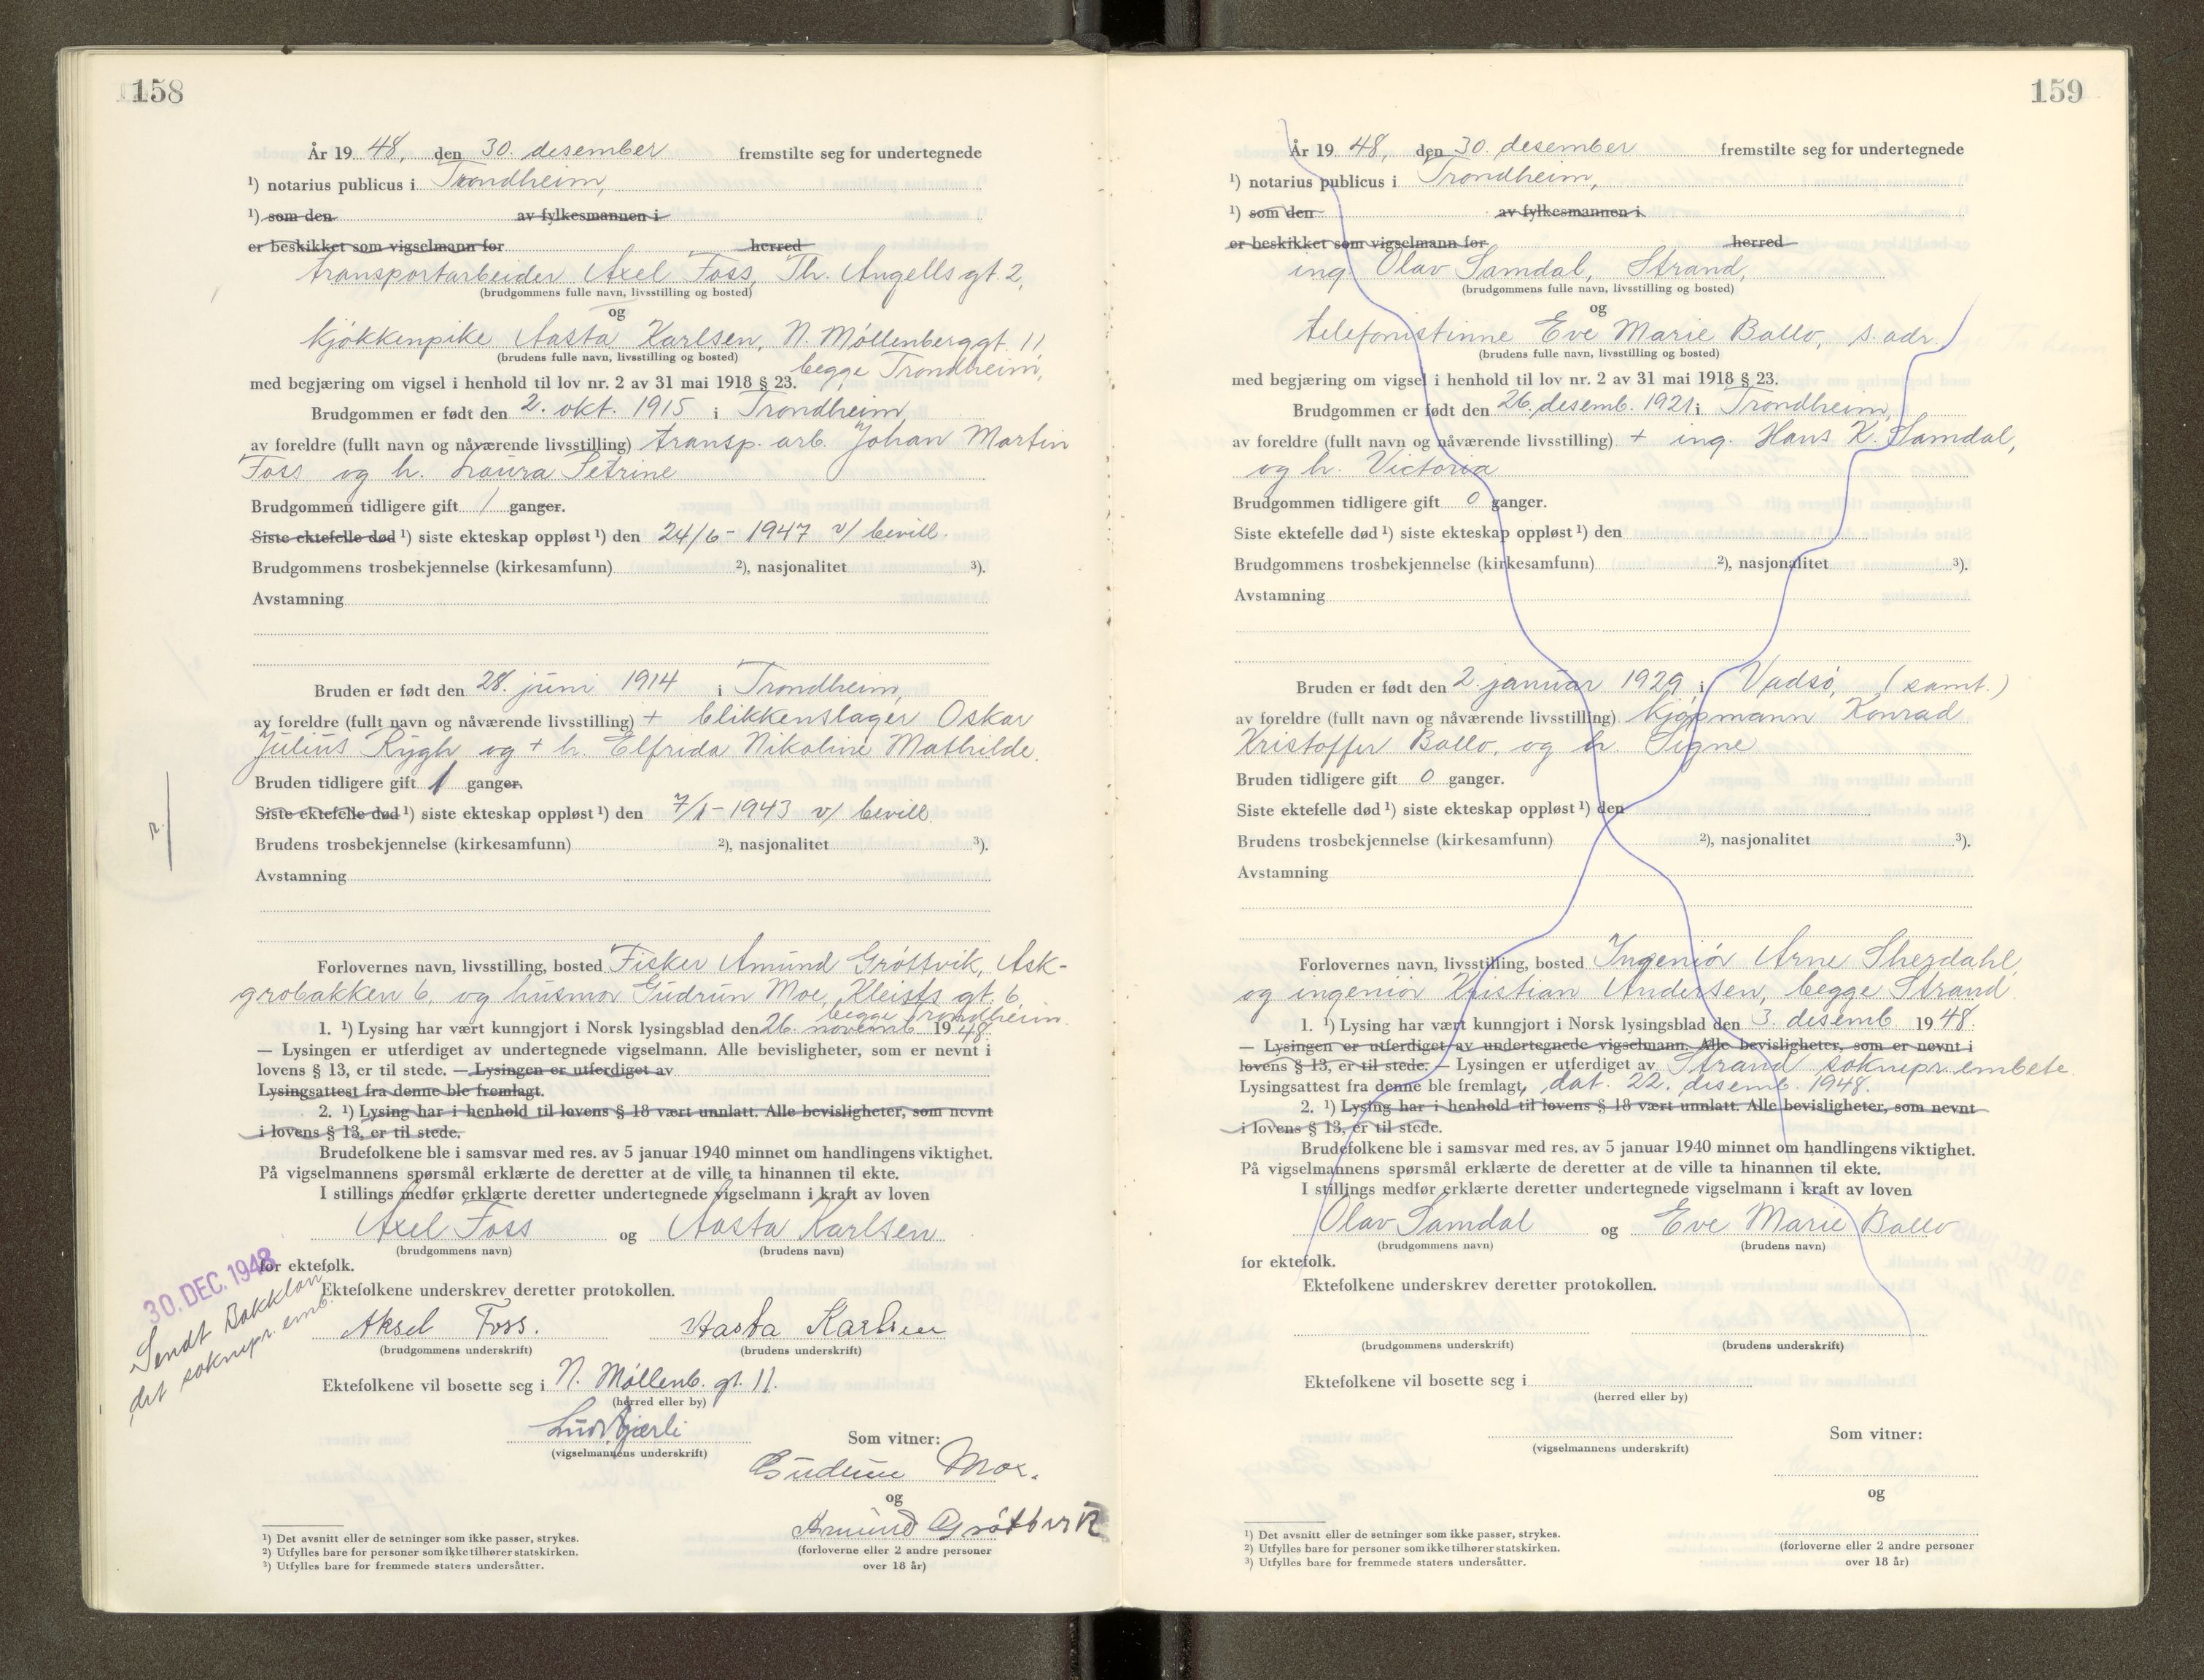 158
År 19 48, den 30. desember fremstilte seg for undertegnede
¹) notarius publicus i Trondheim,
¹) som den av fylkesmannen i
er beskikket som vigselmann for herred
transportarbeider Axel Foss, Th. Angells gt. 2,
(brudgommens fulle navn, livsstilling og bosted)
og
kjøkkenpike Aasta Karlsen, N. Møllenberggt. 11,
(brudens fulle navn, livsstilling og bosted)
begge Trondheim,
med begjæring om vigsel i henhold til lov nr. 2 av 31 mai 1918 § 23.
Brudgommen er født den 2. okt. 1915 i Trondheim,
av foreldre (fullt navn og nåværende livsstilling) transp. arb. Johan Martin
Foss og h. Laura Petrine
Brudgommen tidligere gift 1 ganger.
Siste ektefelle død ¹) siste ekteskap oppløst ¹) den 24/6 - 1947 v/ bevill.
Brudgommens trosbekjennelse (kirkesamfunn) ²), nasjonalitet ³).
Avstamning
Bruden er født den 28. juni 1914 i Trondheim,
av foreldre (fullt navn og nåværende livsstilling) + blikkenslager Oskar
Julius Rygh og + h. Elfrida Nikoline Mathilde.
Bruden tidligere gift 1 ganger.
Siste ektefelle død ¹) siste ekteskap oppløst ¹) den 7/1 - 1943 v/ bevill.
Brudens trosbekjennelse (kirkesamfunn) ²), nasjonalitet ³).
Avstamning
Forlovernes navn, livsstilling, bosted Fisker Amund Grøttvik, Ask-
grobakken 6, og husmor Gudrun Moe, Kleists gt. 6,
begge Trondheim.
1. ¹) Lysing har vært kunngjort i Norsk lysingsblad den 26. novemb. 19 48.
— Lysingen er utferdiget av undertegnede vigselmann. Alle bevisligheter, som er nevnt i
lovens § 13, er til stede. — Lysingen er utferdiget av
Lysingsattest fra denne ble fremlagt.
2. ¹) Lysing har i henhold til lovens § 18 vært unnlatt. Alle bevisligheter, som nevnt
i lovens § 13, er til stede.
Brudefolkene ble i samsvar med res. av 5 januar 1940 minnet om handlingens viktighet.
På vigselmannens spørsmål erklærte de deretter at de ville ta hinannen til ekte.
I stillings medfør erklærte deretter undertegnede vigselmann i kraft av loven
Axel Foss og Aasta Karlsen
(brudgommens navn) (brudens navn)
for ektefolk.
30. DEC. 1948
Sendt Bakklan
det soknepr. emb.
Ektefolkene underskrev deretter protokollen.
Aksel Foss. Aasta Karlsen
(brudgommens underskrift) (brudens underskrift)
Ektefolkene vil bosette seg i N. Møllenb. gt. 11.
(herred eller by)
(vigselmannens underskrift)
Som vitner:
Gudrun Moe.
og
Amund Grøttvik
(forloverne eller 2 andre personer
over 18 år)
¹) Det avsnitt eller de setninger som ikke passer, strykes.
²) Utfylles bare for personer som ikke tilhører statskirken.
³) Utfylles bare for fremmede staters undersåtter.
159
År 19 48, den 30. desember fremstilte seg for undertegnede
¹) notarius publicus i Trondheim,
¹) som den av fylkesmannen i
er beskikket som vigselmann for herred
ing. Olav Samdal, Strand,
(brudgommens fulle navn, livsstilling og bosted)
og
telefonistinne Eve Marie Ballo, s. adr.
(brudens fulle navn, livsstilling og bosted)
med begjæring om vigsel i henhold til lov nr. 2 av 31 mai 1918 § 23.
Brudgommen er født den 26. desemb. 1921 i Trondheim,
av foreldre (fullt navn og nåværende livsstilling) + ing. Hans K. Samdal,
og h. Victoria
Brudgommen tidligere gift 0 ganger.
Siste ektefelle død ¹) siste ekteskap oppløst ¹) den
Brudgommens trosbekjennelse (kirkesamfunn) ²), nasjonalitet ³).
Avstamning
Bruden er født den 2. januar 1929 i Vadsø, (samt.)
av foreldre (fullt navn og nåværende livsstilling) kjøpmann Konrad
Kristoffer Ballo, og h. Signe
Bruden tidligere gift 0 ganger.
Siste ektefelle død ¹) siste ekteskap oppløst ¹) den
Brudens trosbekjennelse (kirkesamfunn) ²), nasjonalitet ³).
Avstamning
Forlovernes navn, livsstilling, bosted Ingeniør Arne Sherdahl,
og ingeniør Kristian Andersen, begge Strand
1. ¹) Lysing har vært kunngjort i Norsk lysingsblad den 3. desemb. 19 48.
— Lysingen er utferdiget av undertegnede vigselmann. Alle bevisligheter, som er nevnt i
lovens § 13, er til stede. — Lysingen er utferdiget av Strand soknepr. embete.
Lysingsattest fra denne ble fremlagt, dat. 22. desemb. 1948.
2. ¹) Lysing har i henhold til lovens § 18 vært unnlatt. Alle bevisligheter, som nevnt
i lovens § 13, er til stede.
Brudefolkene ble i samsvar med res. av 5 januar 1940 minnet om handlingens viktighet.
På vigselmannens spørsmål erklærte de deretter at de ville ta hinannen til ekte.
I stillings medfør erklærte deretter undertegnede vigselmann i kraft av loven
Olav Samdal og Eve Marie Ballo
(brudgommens navn) (brudens navn)
for ektefolk.
Ektefolkene underskrev deretter protokollen.
(brudgommens underskrift) (brudens underskrift)
Ektefolkene vil bosette seg i
(herred eller by)
(vigselmannens underskrift)
Som vitner:
og
(forloverne eller 2 andre personer
over 18 år)
¹) Det avsnitt eller de setninger som ikke passer, strykes.
²) Utfylles bare for personer som ikke tilhører statskirken.
³) Utfylles bare for fremmede staters undersåtter.